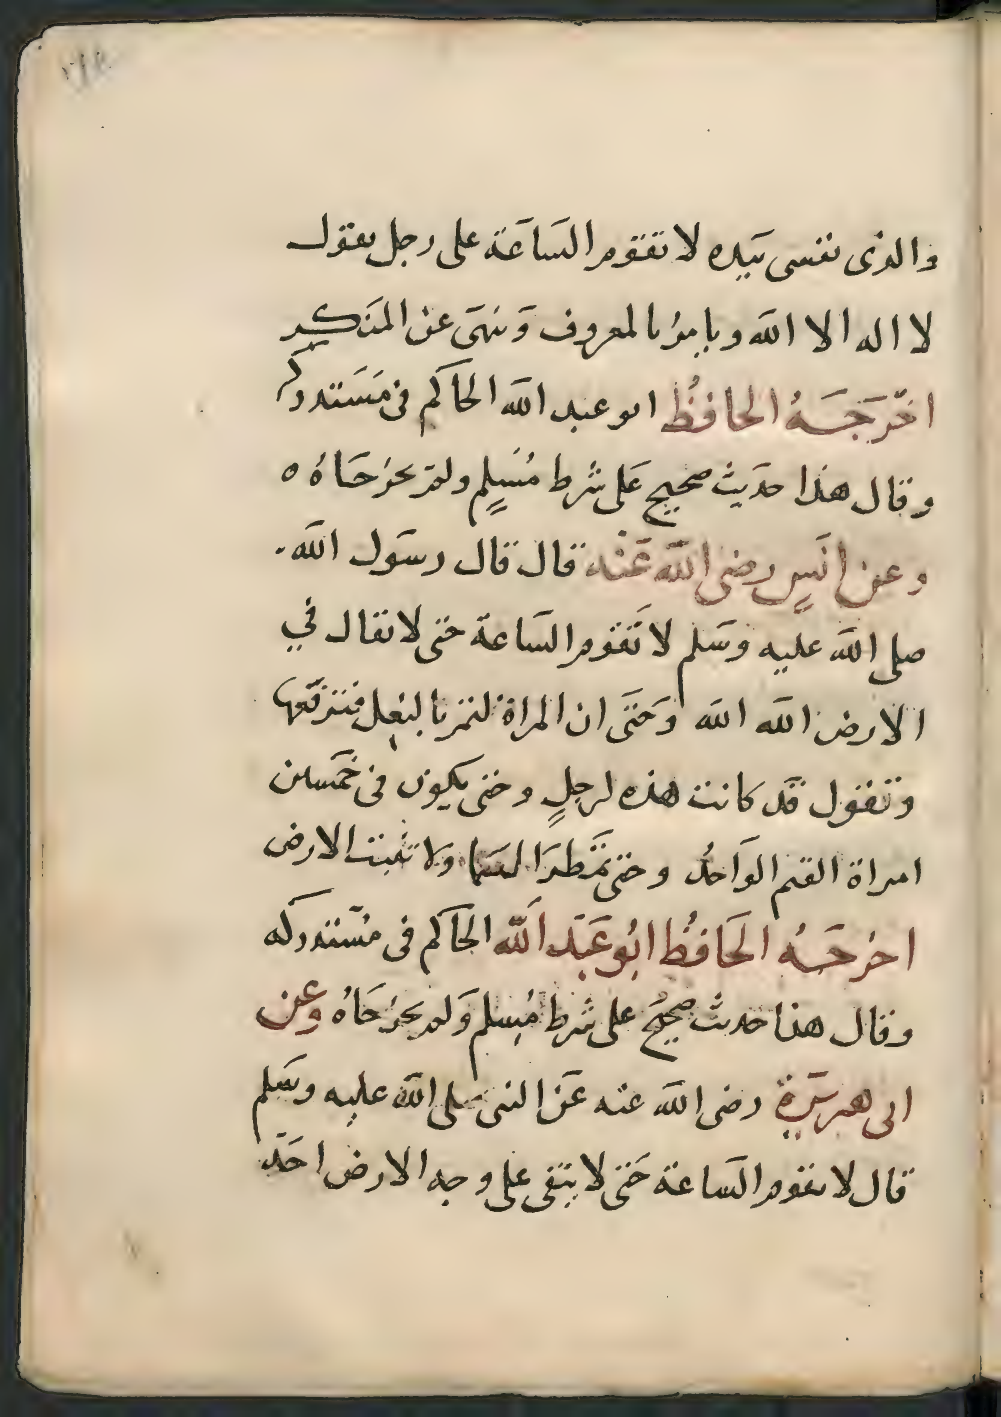 والذي نفسي بيده لا تقوم الساعة على رجل يقول
لا اله الا الله ويامر بالمعروف وينهى عن المنكر
اخرجه الحافظ ابو عبد الله الحاكم في مستدركه
وقال هذا حديث صحيح على شرط مسلم ولم يخرجاه ه
وعن انس رضي الله عنه قال قال رسول الله
صلى الله عليه وسلم لا تقوم الساعة حتى لا يقال في
الارض الله الله وحتى ان المراة لتمر بالبعل فترفعها
وتقول قد كانت هذه لرجل وحتى يكون في خمسين
امراة القيم الواحد وحتى تمطر السما ولا تنبت الارض
اخرجه الحافظ ابو عبد الله الحاكم في مستدركه
وقال هذا حديث صحيح على شرط مسلم ولم يخرجاه وعن
ابي هريرة رضي الله عنه عن النبي صلى الله عليه وسلم
قال لا تقوم الساعة حتى لا يبقى على وجه الارض احد